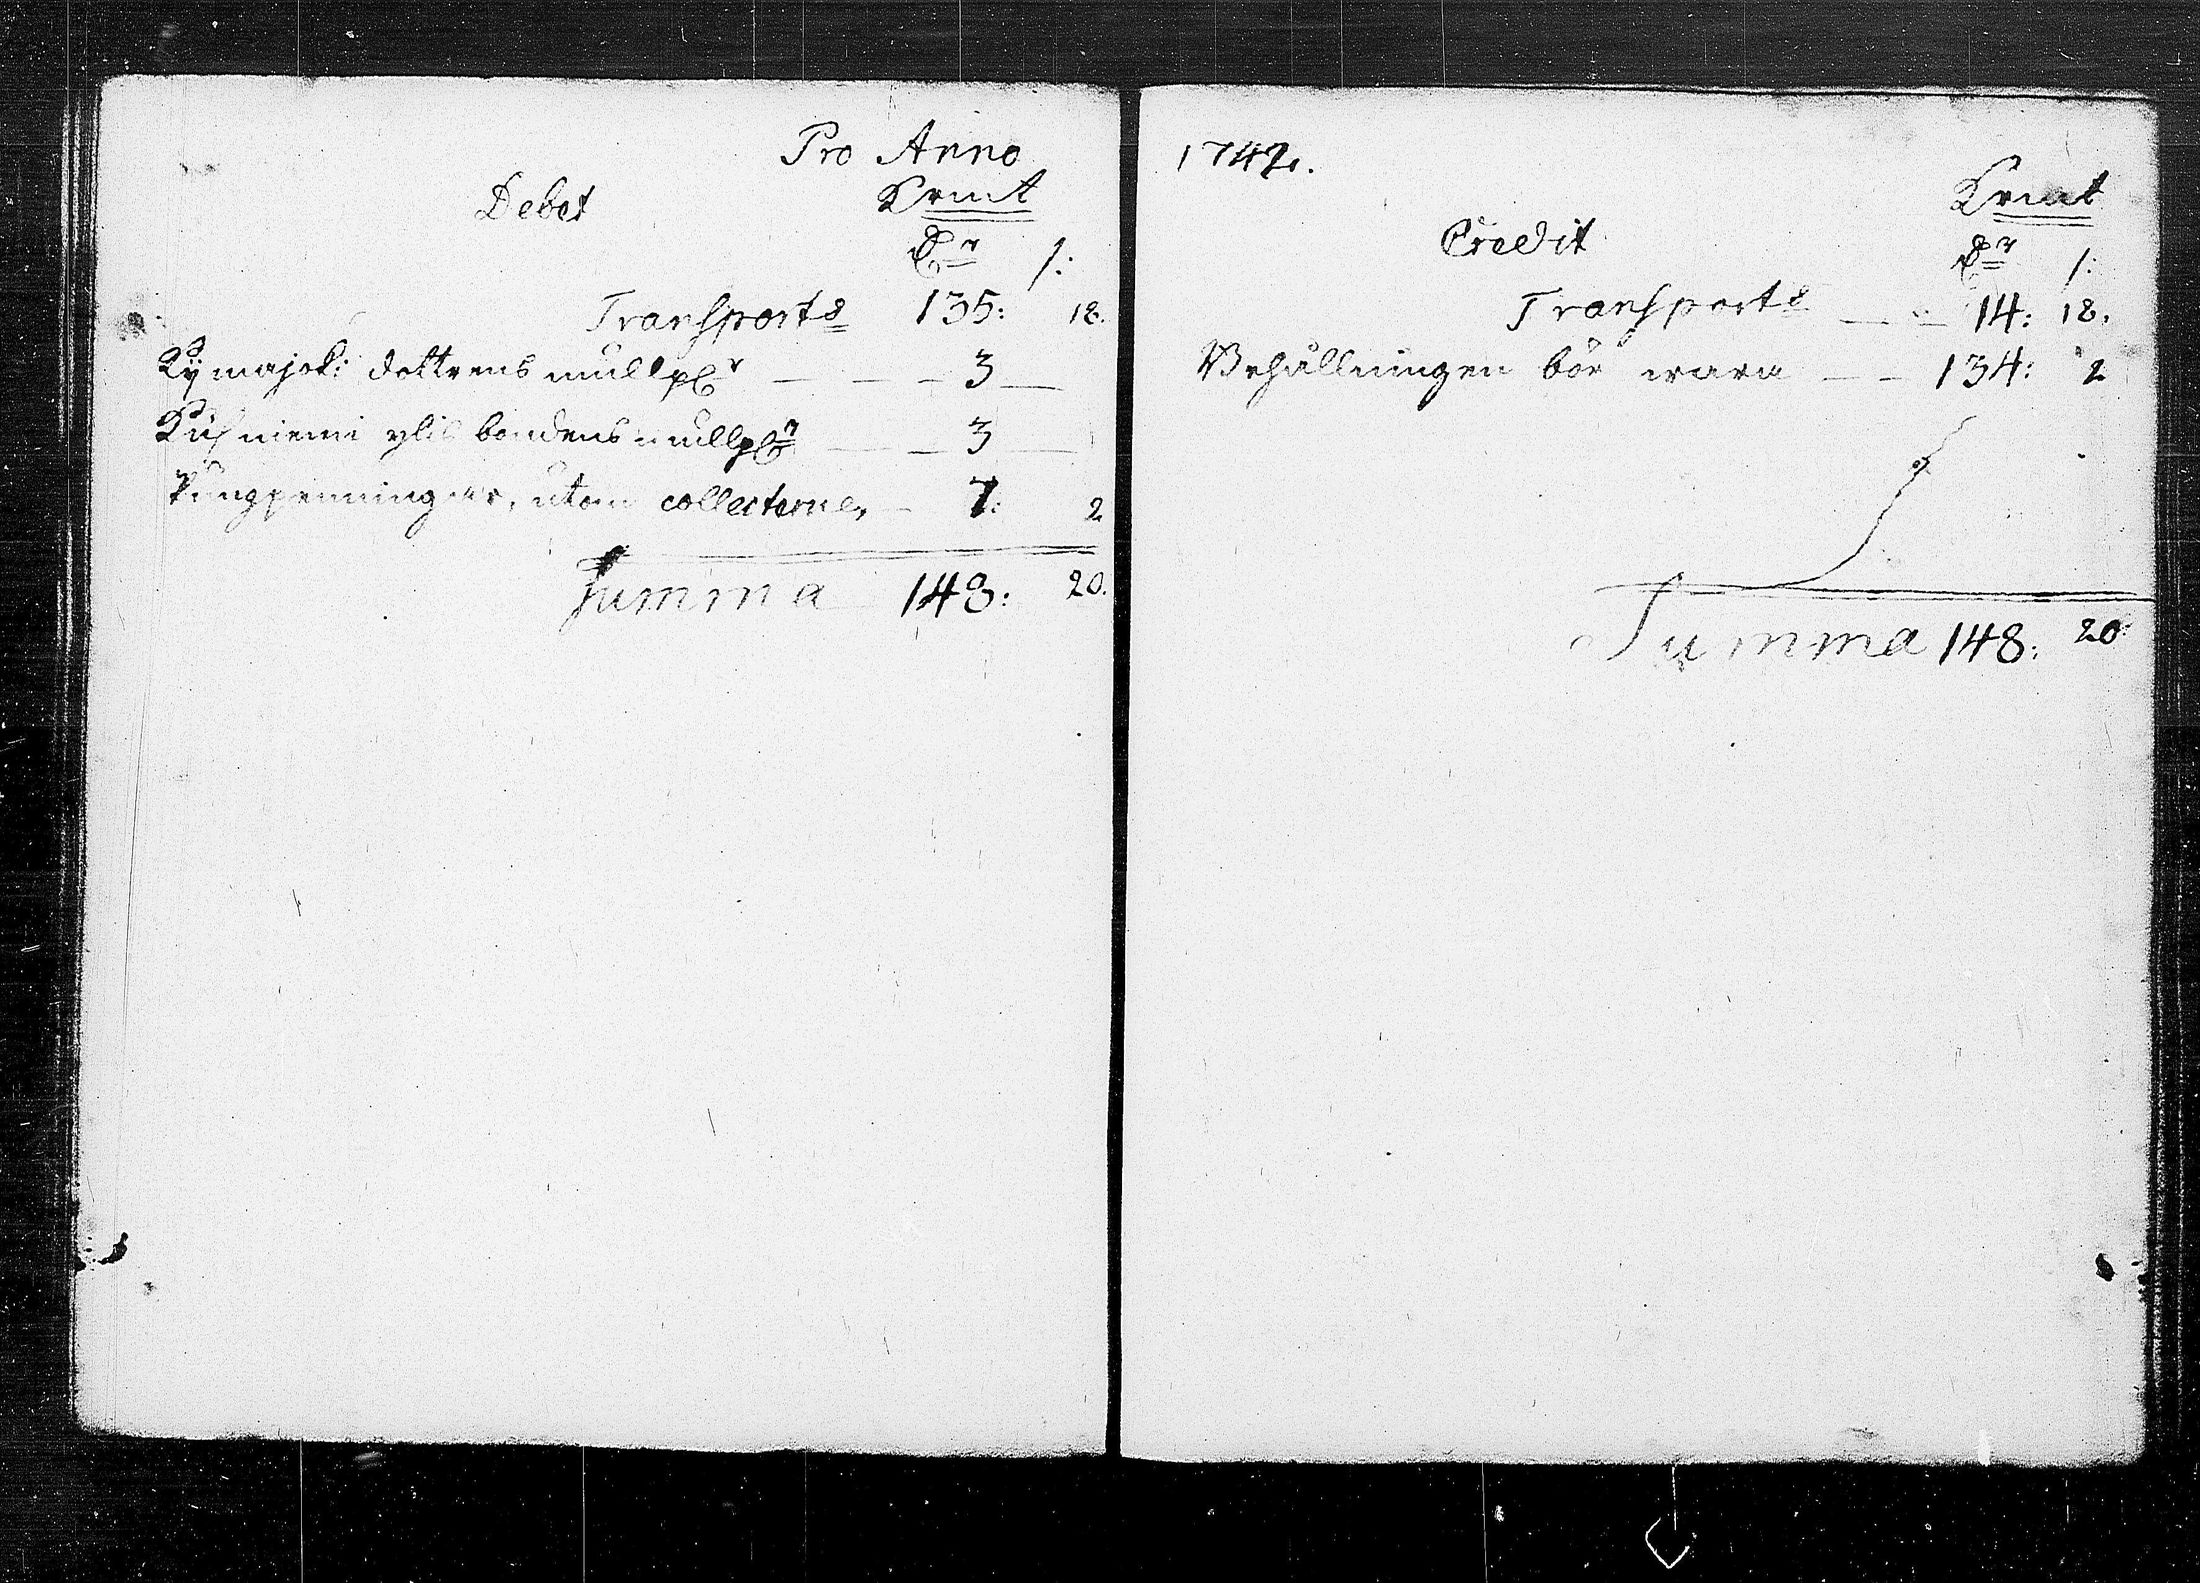 Pro Anno
Debet Kmt
Dr /:
Transport 135: 18.
Kymajok: dottrens mullpgr 3
niemi ylis bondens mullpgr 3
Pungpenningar, utom collecterne, 7: 2
Summa 148: 20.
1742.
Kmt
Credit
Dr /:
Transport 14: 18.
Behållningen bör wara 134: 2
Summa 148: 20